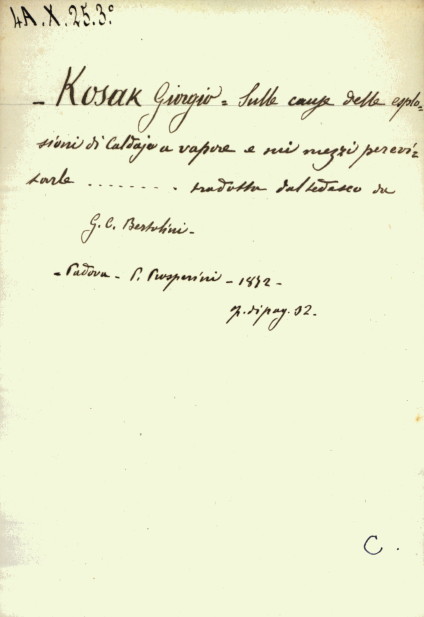 4A.X.25.3º
- Kosak Giorgio = Sulle cause delle esplo-
sioni di Caldaje a vapore e sui mezzi per evi-
tarle ........ tradotta dal tedesco da
G. C. Bertolini -
- Padova - P. Prosperini - 1872 -
di pag. 92 -
C.